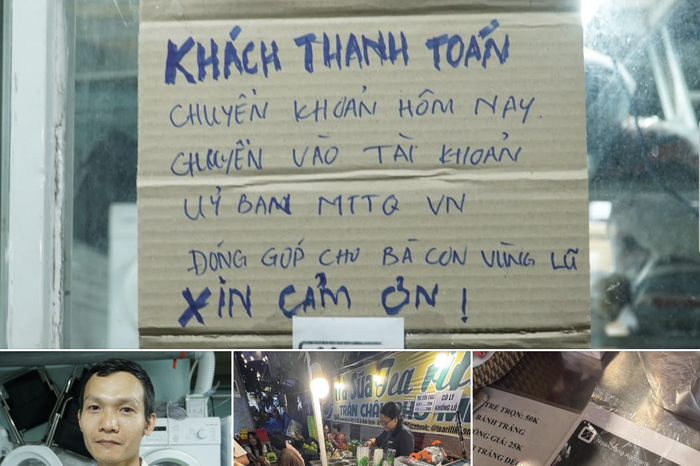 KHÁCH THANH TOÁN
CHUYỂN KHOẢN HÔM NAY.
CHUYỂN VÀO TÀI KHOẢN
UỶ BAN MTTQ VN
ĐÓNG GÓP CHO BÀ CON VÙNG LŨ
XIN CẢM ƠN!
Trà Sữa Tea
TRÂN CHÂU
CÓ LY
KHỔNG LỒ
TRẺ TRỌN: 50K
BÁNH TRÁNG
ỐNG GIÁ: 25K
TRÁNG DẺ